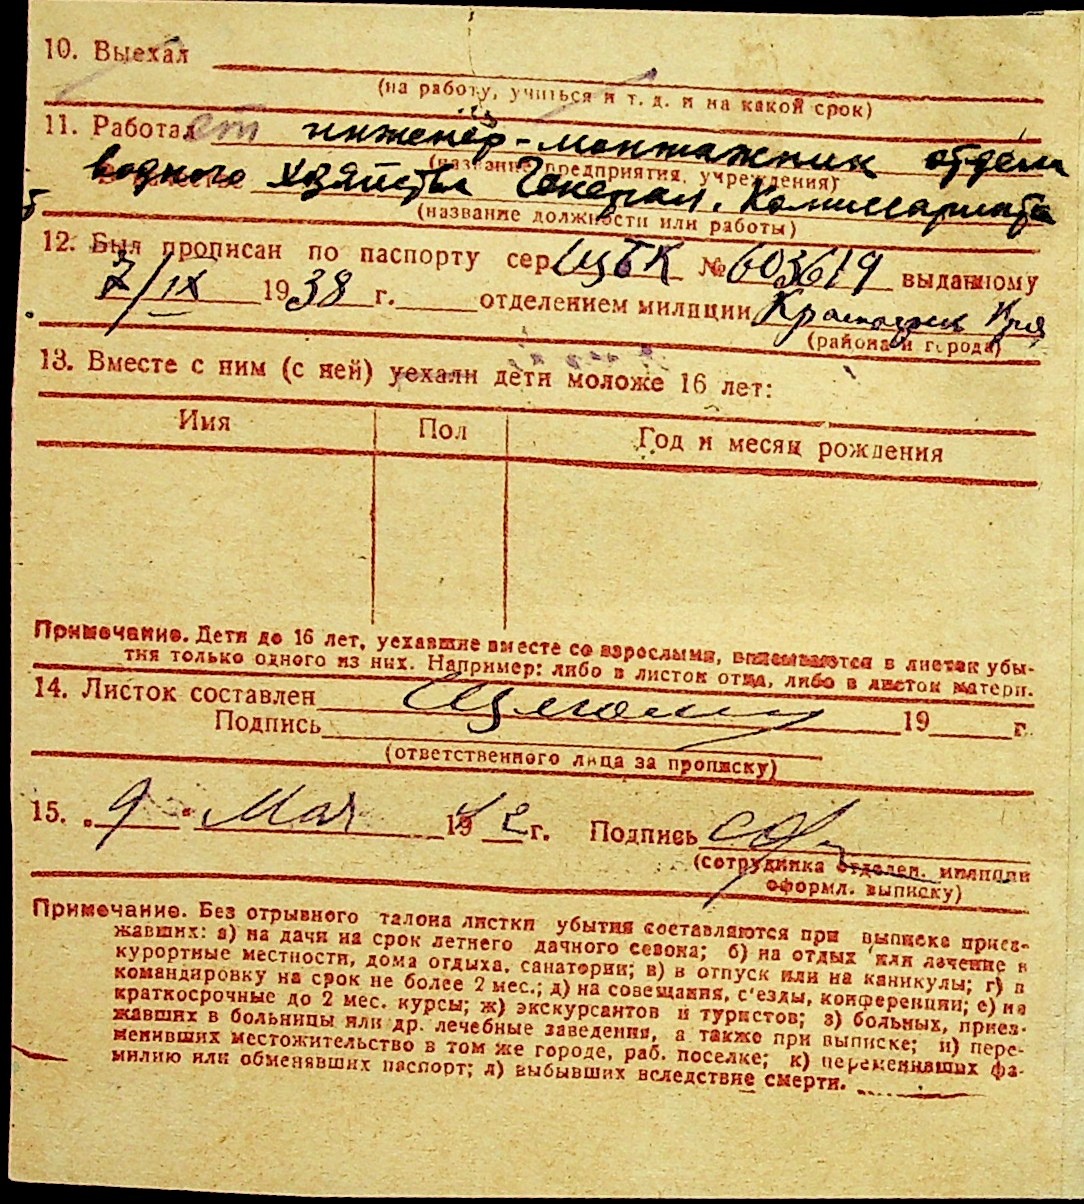 10. Выехал
(на работу, учиться и т. д. и на какой срок)
11. Работает инженер-монтажник отдела
(название предприятия, учреждения)
водного хозяйства Генерал. Комиссариата
(название должности или работы)
12. Был прописан по паспорту сер. № 603619 выданному
7/IX 1938 г. отделением милиции
(района и города)
13. Вместе с ним (с ней) уехали дети моложе 16 лет:
Имя Пол Год и месяц рождения
Примечание. Дети до 16 лет, уехавшие вместе со взрослыми, вписываются в листок убы-
тия только одного из них. Например: либо в листок отца, либо в листок матери.
14. Листок составлен 19 г.
Подпись
(ответственного лица за прописку)
15. „9" Мая 1942 г. Подпись
(сотрудника отделен. милиции
оформл. выписку)
Примечание. Без отрывного талона листки убытия составляются при выписке приез-
жавших: а) на дачи на срок летнего дачного сезона; б) на отдых или лечение в
курортные местности, дома отдыха, санатории; в) в отпуск или на каникулы; г) в
командировку на срок не более 2 мес.; д) на совещания, с'езды, конференции; е) на
краткосрочные до 2 мес. курсы; ж) экскурсантов и туристов; з) больных, приез-
жавших в больницы или др. лечебные заведения, а также при выписке; и) пере-
менивших местожительство в том же городе, раб. поселке; к) переменивших фа-
милию или обменявших паспорт; л) выбывших вследствие смерти.